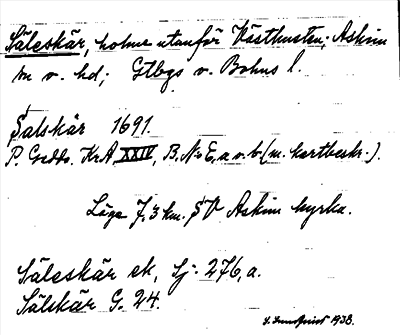 Säleskär, holme utanför Västkusten; Askim
sn o. hd; Gtbgs o. Bohus l.
Salskär 1691.
P. Gedda. Kr A XXIV, B. N:o E, a o. b (m. kartbeskr.).
Läge 7,3 km. SV Askim kyrka.
Säleskär ek, Sj. 276, a.
Sälskär G. 24.
1938.